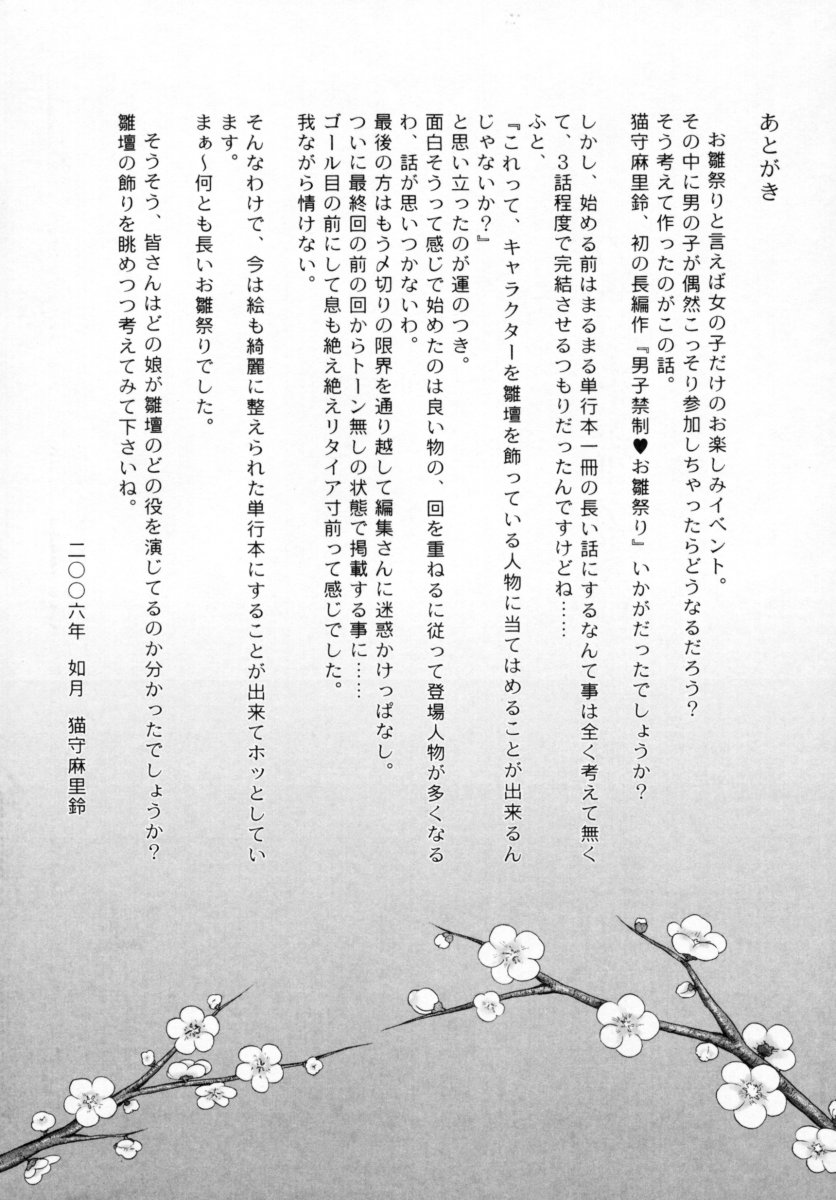 あとがき
お雛祭りと言えば女の子だけのお楽しみイベント。
その中に男の子が偶然こっそり参加しちゃったらどうなるだろう?
そう考えて作ったのがこの話。
猫守麻里鈴、初の長編作『男子禁制♥お雛祭り』いかがだったでしょうか?
しかし、始める前はまるまる単行本一冊の長い話にするなんて事は全く考えて無く
て、3話程度で完結させるつもりだったんですけどね……
ふと、
『これって、キャラクターを雛壇を飾っている人物に当てはめることが出来るん
じゃないか?』
と思い立ったのが運のつき。
面白そうって感じで始めたのは良い物の、回を重ねるに従って登場人物が多くなる
わ、話が思いつかないわ。
最後の方はもう〆切りの限界を通り越して編集さんに迷惑かけっぱなし。
ついに最終回の前の回からトーン無しの状態で掲載する事に……
ゴール目の前にして息も絶え絶えリタイア寸前って感じでした。
我ながら情けない。
そんなわけで、今は絵も綺麗に整えられた単行本にすることが出来てホッとしてい
ます。
まぁ～何とも長いお雛祭りでした。
そうそう、皆さんはどの娘が雛壇のどの役を演じてるのか分かったでしょうか?
雛壇の飾りを眺めつつ考えてみて下さいね。
二〇〇六年　如月　猫守麻里鈴